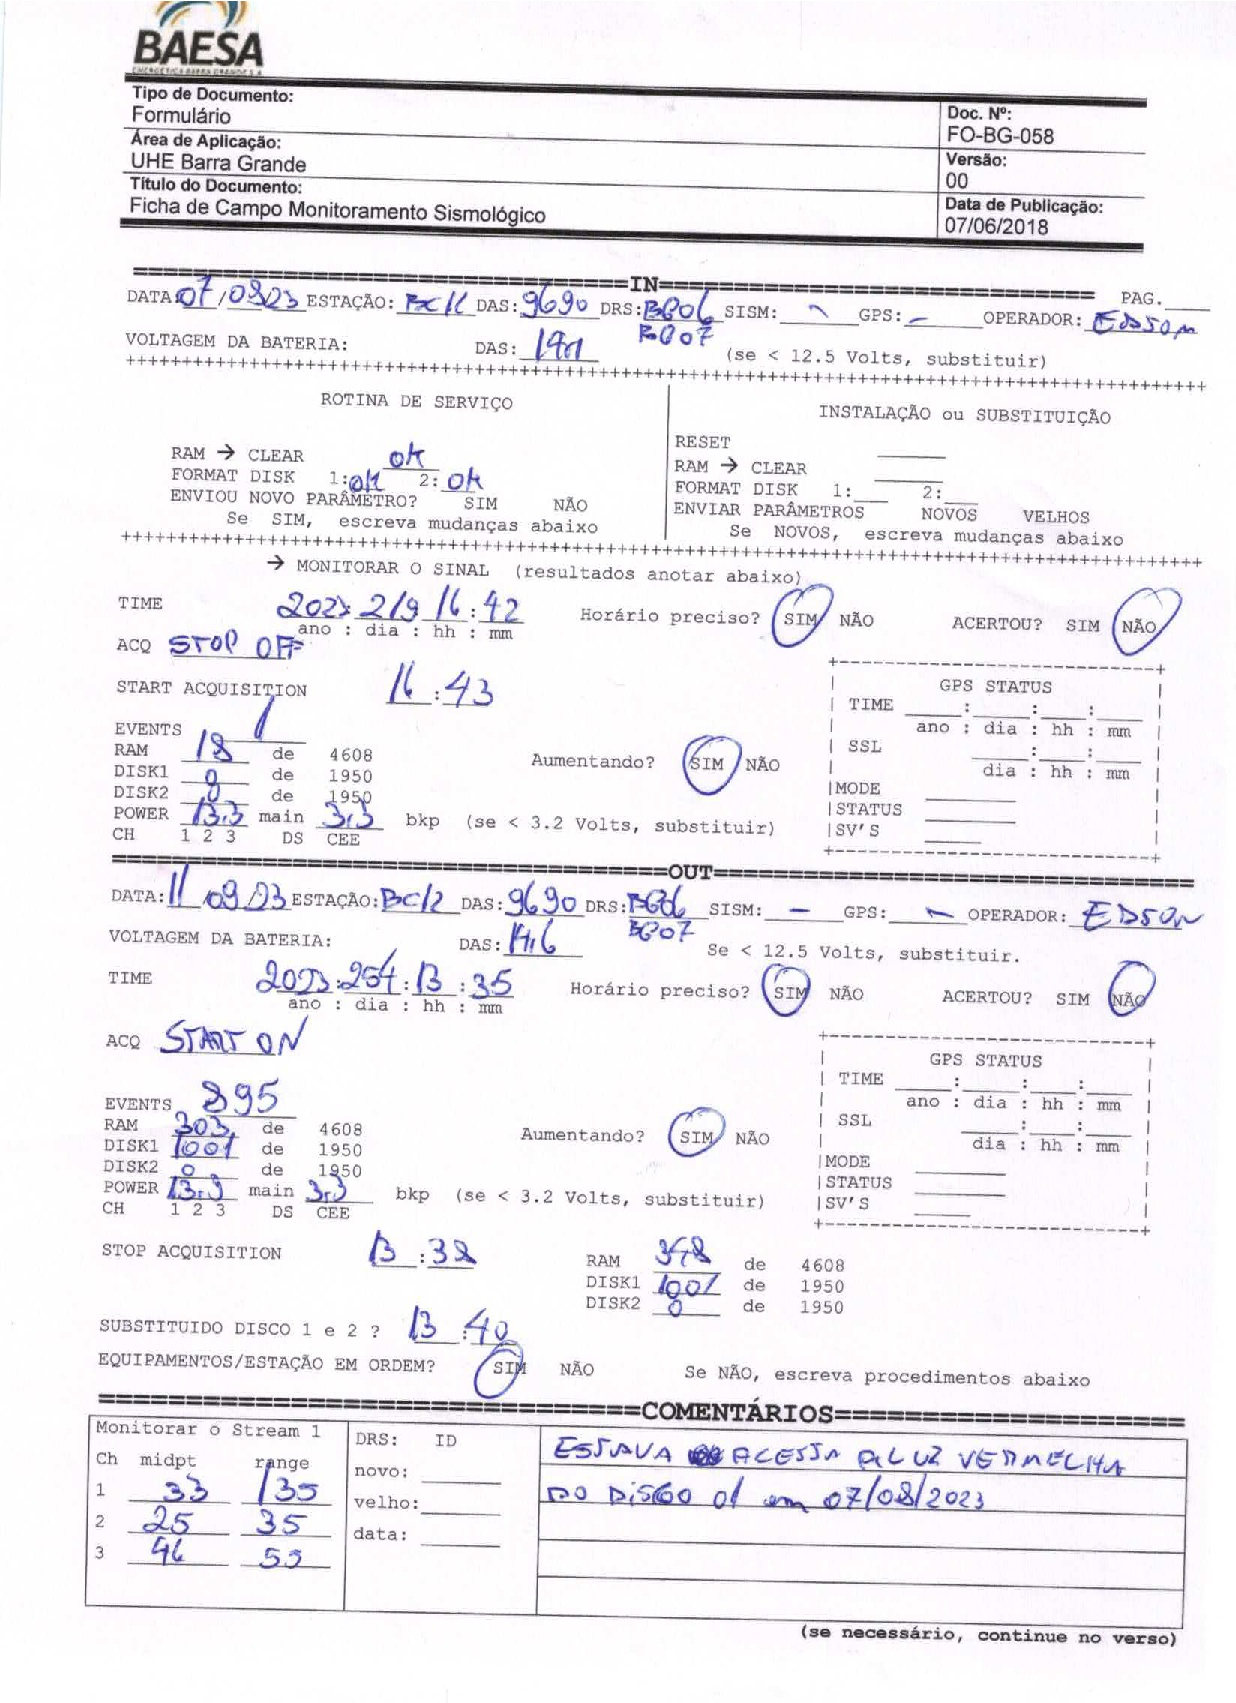 BAESA
ENERGÉTICA BARRA GRANDE S.A.
Tipo de Documento:
Formulário
Área de Aplicação:
UHE Barra Grande
Título do Documento:
Ficha de Campo Monitoramento Sismológico
Doc. Nº:
FO-BG-058
Versão:
00
Data de Publicação:
07/06/2018
==================================IN==================================
PAG.____
DATA:07/08/23 ESTAÇÃO: DAS:9690 DRS:BG06 SISM: - GPS: - OPERADOR: EDSON
BG07
VOLTAGEM DA BATERIA: DAS: (se < 12.5 Volts, substituir)
++++++++++++++++++++++++++++++++++++++++++++++++++++++++++++++++
ROTINA DE SERVIÇO
RAM → CLEAR ok
FORMAT DISK 1:ok 2: ok
ENVIOU NOVO PARÂMETRO? SIM NÃO
Se SIM, escreva mudanças abaixo
INSTALAÇÃO ou SUBSTITUIÇÃO
RESET ____
RAM → CLEAR ____
FORMAT DISK 1:___ 2:___
ENVIAR PARÂMETROS NOVOS VELHOS
Se NOVOS, escreva mudanças abaixo
++++++++++++++++++++++++++++++++++++++++++++++++++++++++++++++++
→ MONITORAR O SINAL (resultados anotar abaixo)
TIME 2023:219 16:42 Horário preciso? SIM NÃO ACERTOU? SIM NÃO
ano : dia : hh : mm
ACQ STOP OFF
START ACQUISITION 16:43
EVENTS 1
RAM 18 de 4608
DISK1 0 de 1950
DISK2 0 de 1950
POWER 13.3 main 3.3 bkp (se < 3.2 Volts, substituir)
CH 1 2 3 DS CEE
Aumentando? SIM NÃO
GPS STATUS
TIME ____:____:___:___
ano : dia : hh : mm
SSL ___:___:___
dia : hh : mm
MODE ____
STATUS ____
SV'S ____
==================================OUT==================================
DATA:11/09/23 ESTAÇÃO:BC12 DAS:9690 DRS:BG06 SISM: - GPS: - OPERADOR: EDSON
BG07
VOLTAGEM DA BATERIA: DAS:14,6 Se < 12.5 Volts, substituir.
TIME 2023:254:13:35 Horário preciso? SIM NÃO ACERTOU? SIM NÃO
ano : dia : hh : mm
ACQ START ON
EVENTS 895
RAM 303 de 4608
DISK1 1001 de 1950
DISK2 0 de 1950
POWER 13.3 main 3.3 bkp (se < 3.2 Volts, substituir)
CH 1 2 3 DS CEE
Aumentando? SIM NÃO
GPS STATUS
TIME ____:____:___:___
ano : dia : hh : mm
SSL ___:___:___
dia : hh : mm
MODE ____
STATUS ____
SV'S ____
STOP ACQUISITION 13:38
RAM 348 de 4608
DISK1 1001 de 1950
DISK2 0 de 1950
SUBSTITUIDO DISCO 1 e 2 ? 13:40
EQUIPAMENTOS/ESTAÇÃO EM ORDEM? SIM NÃO Se NÃO, escreva procedimentos abaixo
==================================COMENTÁRIOS==================================
Monitorar o Stream 1
Ch midpt range
1 33 135
2 25 35
3 46 53
DRS: ID
novo: ____
velho: ____
data: ____
ESTAVA ACESSA A LUZ VERMELHA
DO DISCO 01 em 07/08/2023
(se necessário, continue no verso)